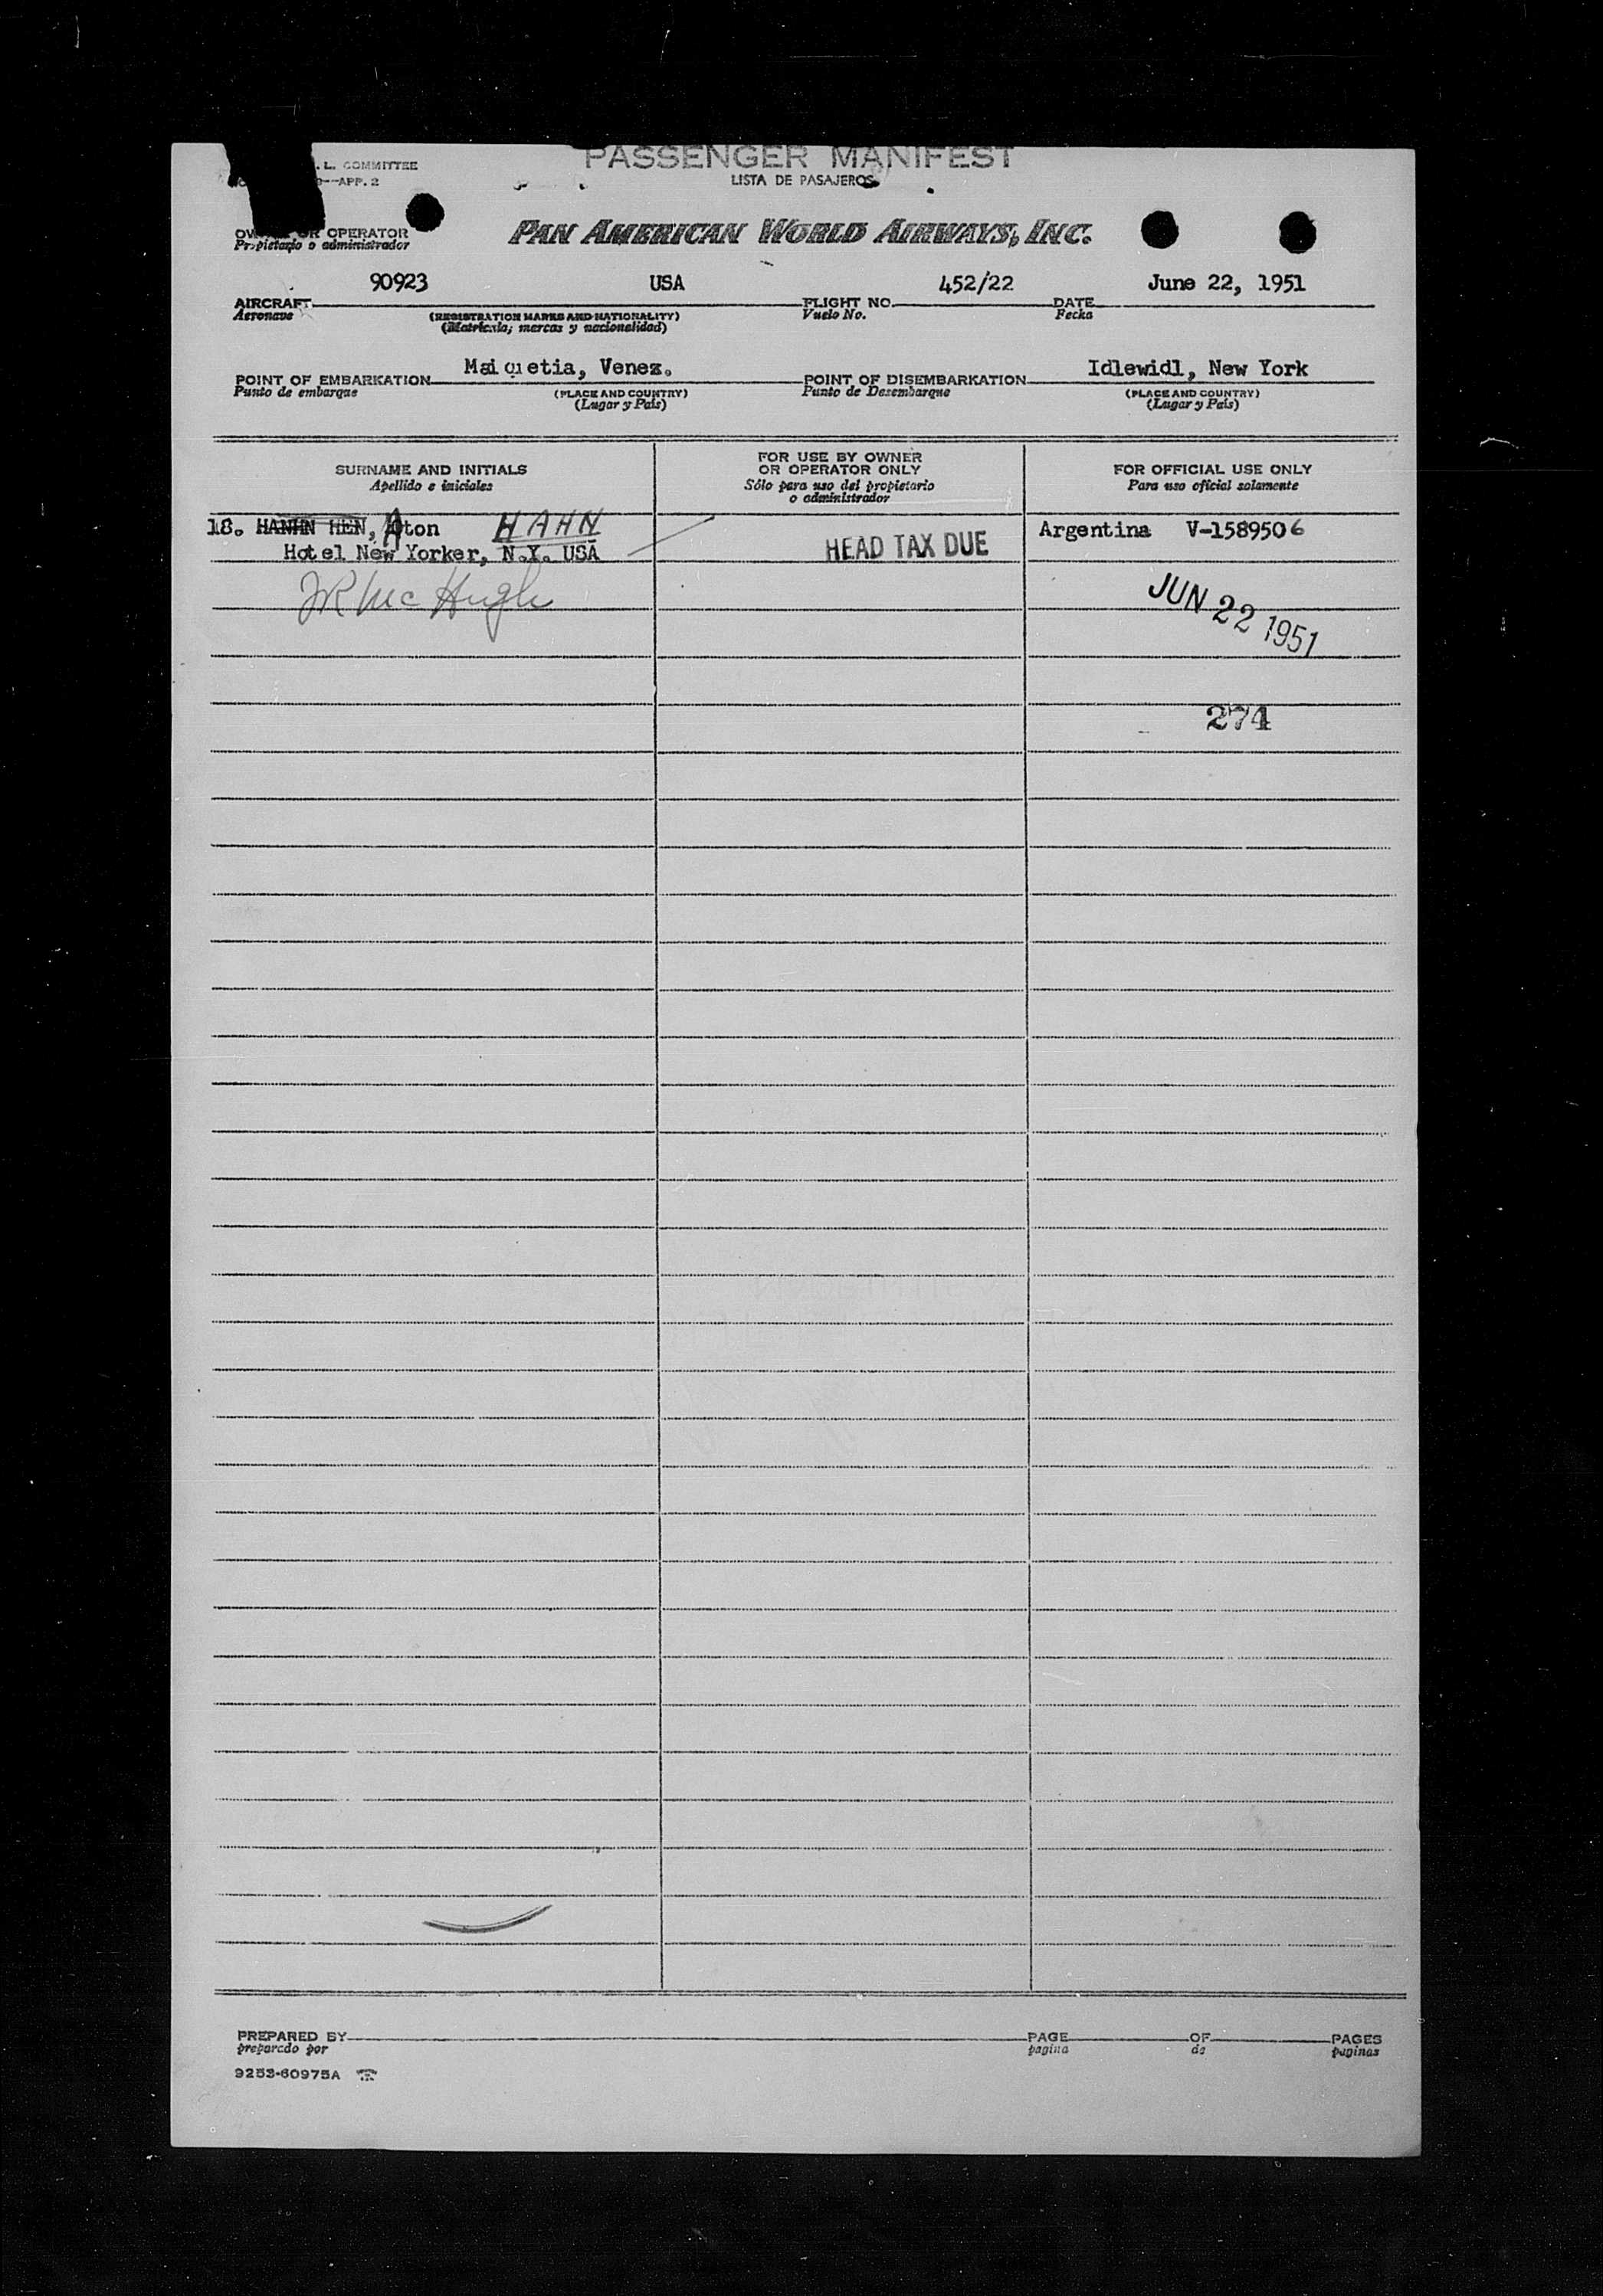 PASSENGER MANIFEST
LISTA DE PASAJEROS
. L. COMMITTEE
APP. 2
OR OPERATOR
Propietario o administrador
PAN AMERICAN WORLD AIRWAYS, INC.
90923 USA 452/22 June 22, 1951
AIRCRAFT FLIGHT NO. DATE
Aeronave (REGISTRATION MARKS AND NATIONALITY) Vuelo No. Fecha
(Matrícula; marcas y nacionalidad)
Maiquetia, Venez. Idlewidl, New York
POINT OF EMBARKATION POINT OF DISEMBARKATION
Punto de embarque (PLACE AND COUNTRY) Punto de Desembarque (PLACE AND COUNTRY)
(Lugar y País) (Lugar y País)
SURNAME AND INITIALS
Apellido e iniciales
FOR USE BY OWNER
OR OPERATOR ONLY
Sólo para uso del propietario
o administrador
FOR OFFICIAL USE ONLY
Para uso oficial solamente
18. HANHN HEN, Aton HAHN Argentina V-1589506
Hotel New Yorker, N.Y. USA HEAD TAX DUE
JR McHugh
JUN 22 1951
274
PREPARED BY PAGE OF PAGES
preparado por pagina de paginas
9253-60975A